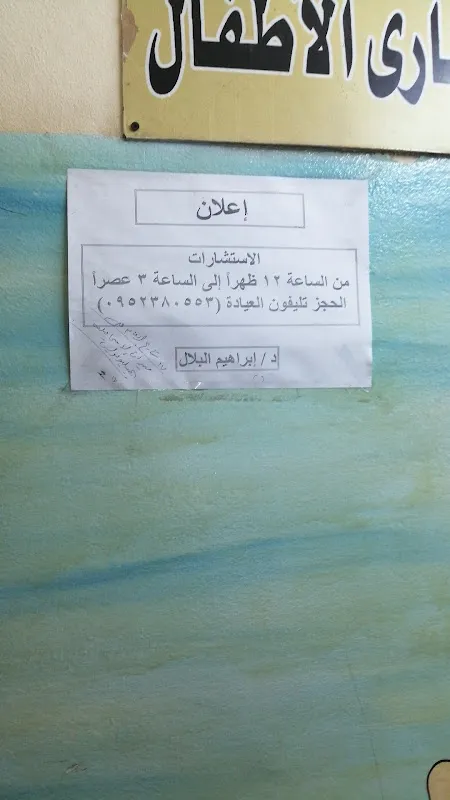 ارى الأطفال
إعلان
الاستشارات
من الساعة ١٢ ظهراً إلى الساعة ٣ عصراً
الحجز تليفون العيادة (٠٩٥٢٣٨٠٥٥٣)
د/ إبراهيم البلال